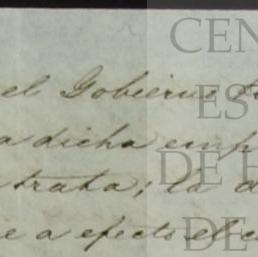 el Gobierno
a dicha emp
trata; la d
e a efecto el c
CEN
ES
DE H
DE